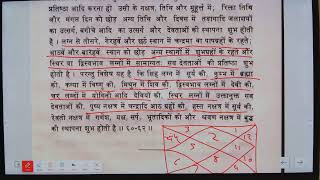 प्रतिष्ठा आदि करना हो उसी के नक्षत्र, तिथि और मुहूर्त्त में; रिक्ता तिथि
और मंगल दिन को छोड़ अन्य तिथि और दिवस में तड़ागादि जलाशयों
का उत्सर्ग, बगीचे आदि का उत्सर्ग तथा देवादिकों की प्रतिष्ठा शुभ होती
है। लग्न से तीसरे, गेरहवें और छठे स्थान में चन्द्रमा वा पापग्रहों के रहते,
आठवें और बारहवें स्थान को छोड़ अन्य स्थानों में शुभग्रहों के रहते और
स्थिर वा द्विस्वभाव लग्नों में सामान्यतः सब देवताओं की प्रतिष्ठा शुभ होती
है। परन्तु विशेष यह है कि सिंह लग्न में सूर्य की, कुम्भ में ब्रह्मा
की, कन्या में विष्णु की, मिथुन में शिव की, द्विस्वभाव लग्नों में देवी की,
चर लग्नों में योगिनी आदि देवियों की, स्थिर लग्नों में उक्तानुक्त सब
देवताओं की, पुष्य नक्षत्र में चन्द्रादि आठ ग्रहों की, हस्त नक्षत्र में सूर्य की,
रेवती नक्षत्र में गणेश, यक्ष, सर्प, भूतादिकों की और श्रवण नक्षत्र में बुद्ध
की स्थापना शुभ होती है ॥ ६०-६२ ॥
2
1
12
11
5
8